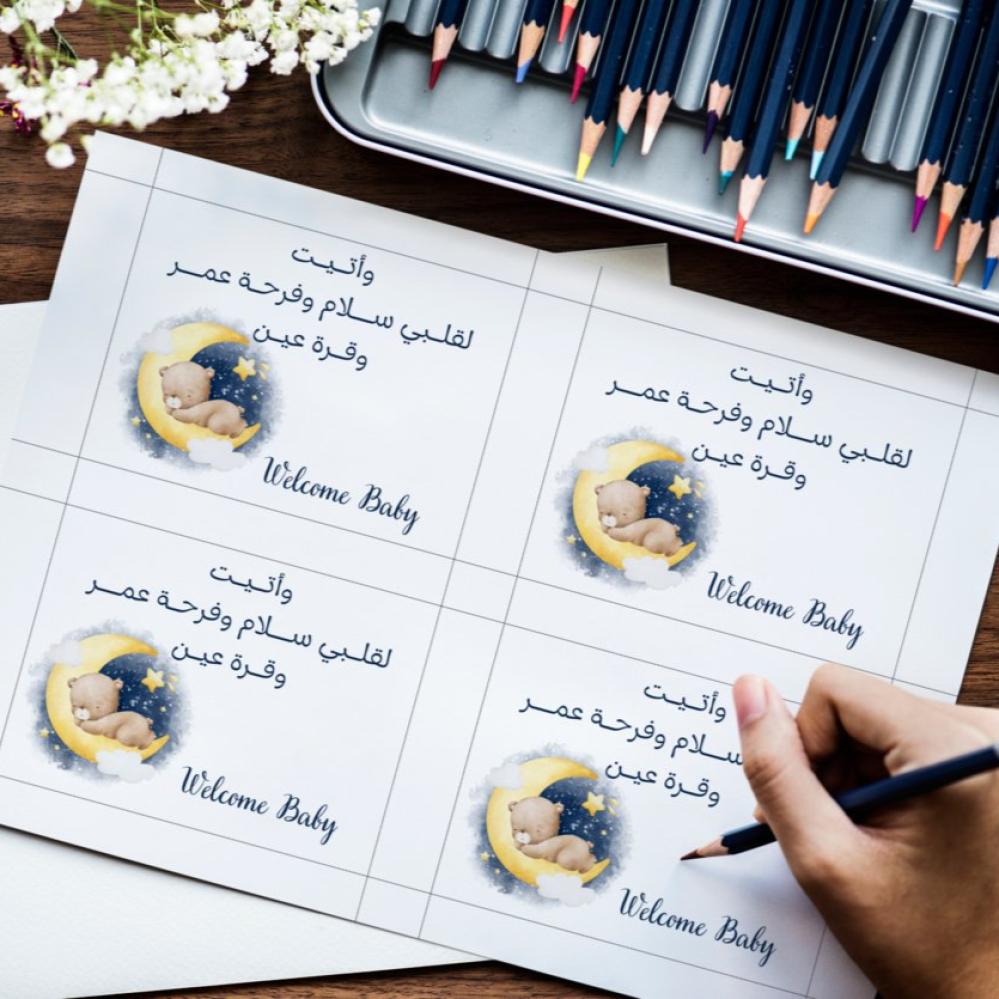 وأتيت
لقلبي سلام وفرحة عمر
وقرة عين
Welcome Baby
وأتيت
لقلبي سلام وفرحة عمر
وقرة عين
Welcome Baby
وأتيت
لقلبي سلام وفرحة عمر
وقرة عين
Welcome Baby
وأتيت
سلام وفرحة عمر
وقرة عين
Welcome Baby